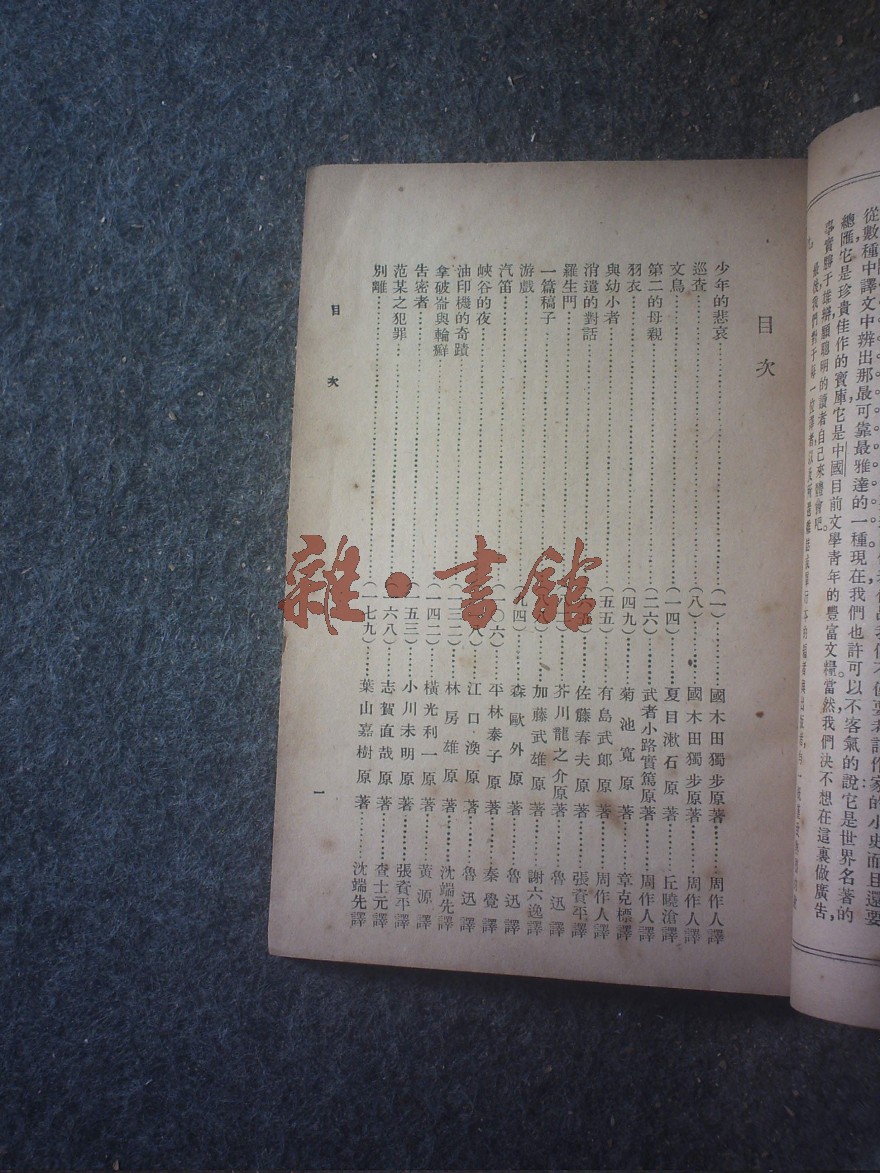 從數種中譯文中辨出那最可靠最雅達的一種現在我們也許可以不客氣的說它是世界名著的
總匯,它是珍貴佳作的寶庫它是中國目前文學青年的豐富文糧當然我們決不想在這裏做廣告,
事實勝于雄辯願聰明的讀者自己來體會吧。
最後,我們對于每一
目次
少年的悲哀(一)國木田獨步原著 周作人譯
巡查(八)國木田獨步原著 周作人譯
文鳥(一四)夏目漱石原著 丘曉滄譯
第二的母親(二六)武者小路實篤原著 周作人譯
羽衣(四九)菊池寬原著 章克標譯
與幼小者(五五)有島武郎原著 周作人譯
消遣的對話 佐藤春夫原著 張資平譯
羅生門 芥川龍之介原著 魯迅譯
一篇稿子 加藤武雄原著 謝六逸譯
游戲(九四)森歐外原著 魯迅譯
汽笛(一〇六)平林泰子原著 秦覺譯
峽谷的夜 江口渙原著 魯迅譯
油印機的奇蹟(一三二)林房雄原著 沈端先譯
拿破崙與輪癬(一四二)橫光利一原著 黃源譯
告密者(一五三)小川未明原著 張資平譯
范某之犯罪(一六八)志賀直哉原著 查士元譯
別離(一七九)葉山嘉樹原著 沈端先譯
目次
一
雜·書館